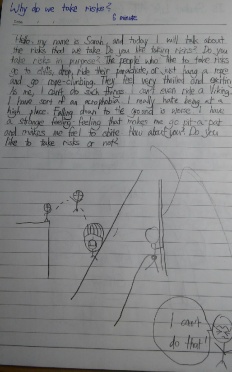 Why do we take risks?
6 minute
Hello, my name is Sarah, and today I will talk about
the risks that we take. Do you like taking risks? Do you
take risks in purpose? The people who like to take risks
go to cliffs, ride their parachute, or just hang a rope
and go rock-climbing. They feel very thrilled and
to me, I can't do such things. I can't even ride a Viking.
I have sort of an acrophobia. I really hate being at a
high place. Falling down to the ground is worse. I have
a strange feeling that makes me go pit-a-pat
and makes me feel to shite. How about you? Do you
like to take risks or not?
I can't
do that!